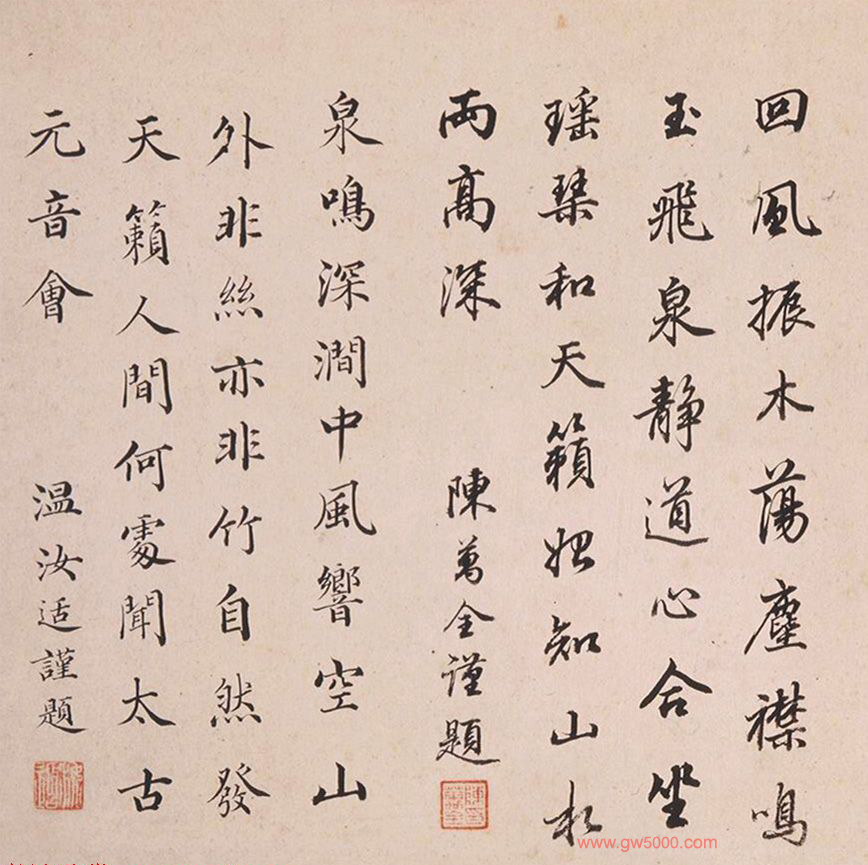 回風振木蕩塵襟鳴
玉飛泉靜道心合坐
瑤琴和天籟始知山水
兩高深
陳萬全謹題
泉鳴深澗中風響空山
外非絲亦非竹自然發
天籟人間何處聞太古
元音會
温汝适謹題
www.gw5000.com